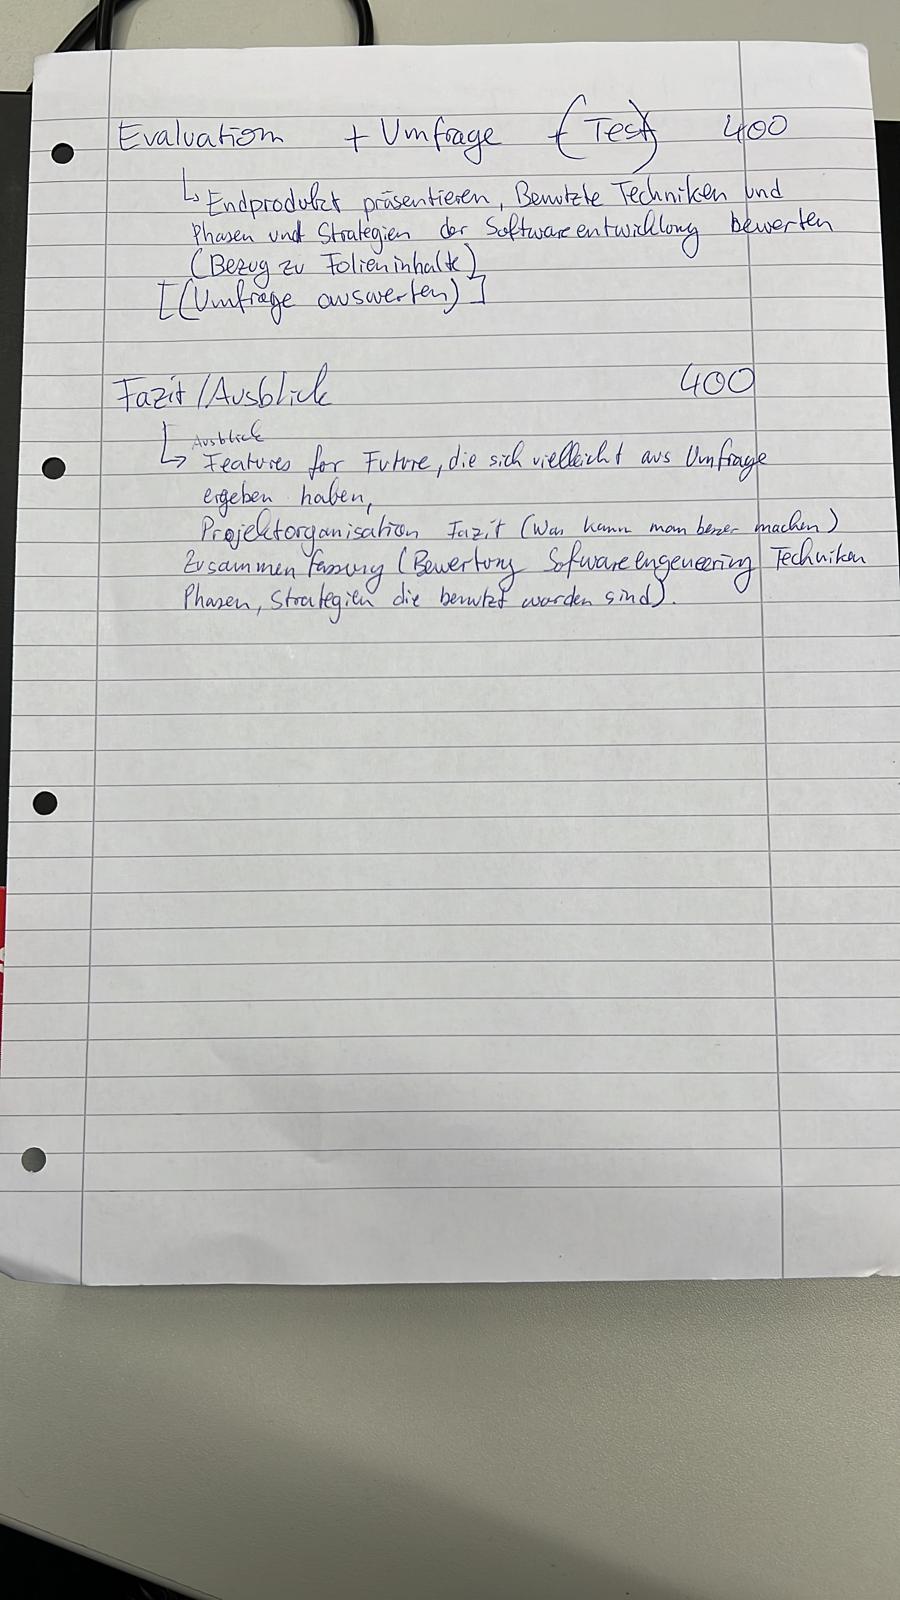 Evaluation + Umfrage + (Test) 400
↳ Endprodukt präsentieren, Benutzte Techniken und
Phasen und Strategien der Softwareentwicklung bewerten
(Bezug zu Folieninhalte)
[(Umfrage auswerten)]
Fazit/Ausblick 400
Ausblick
↳ Features for Future, die sich vielleicht aus Umfrage
ergeben haben,
Projektorganisation Fazit (Was kann man besser machen)
Zusammenfassung (Bewertung Sofwareengeneering Techniken
Phasen, Strategien die benutzt worden sind).